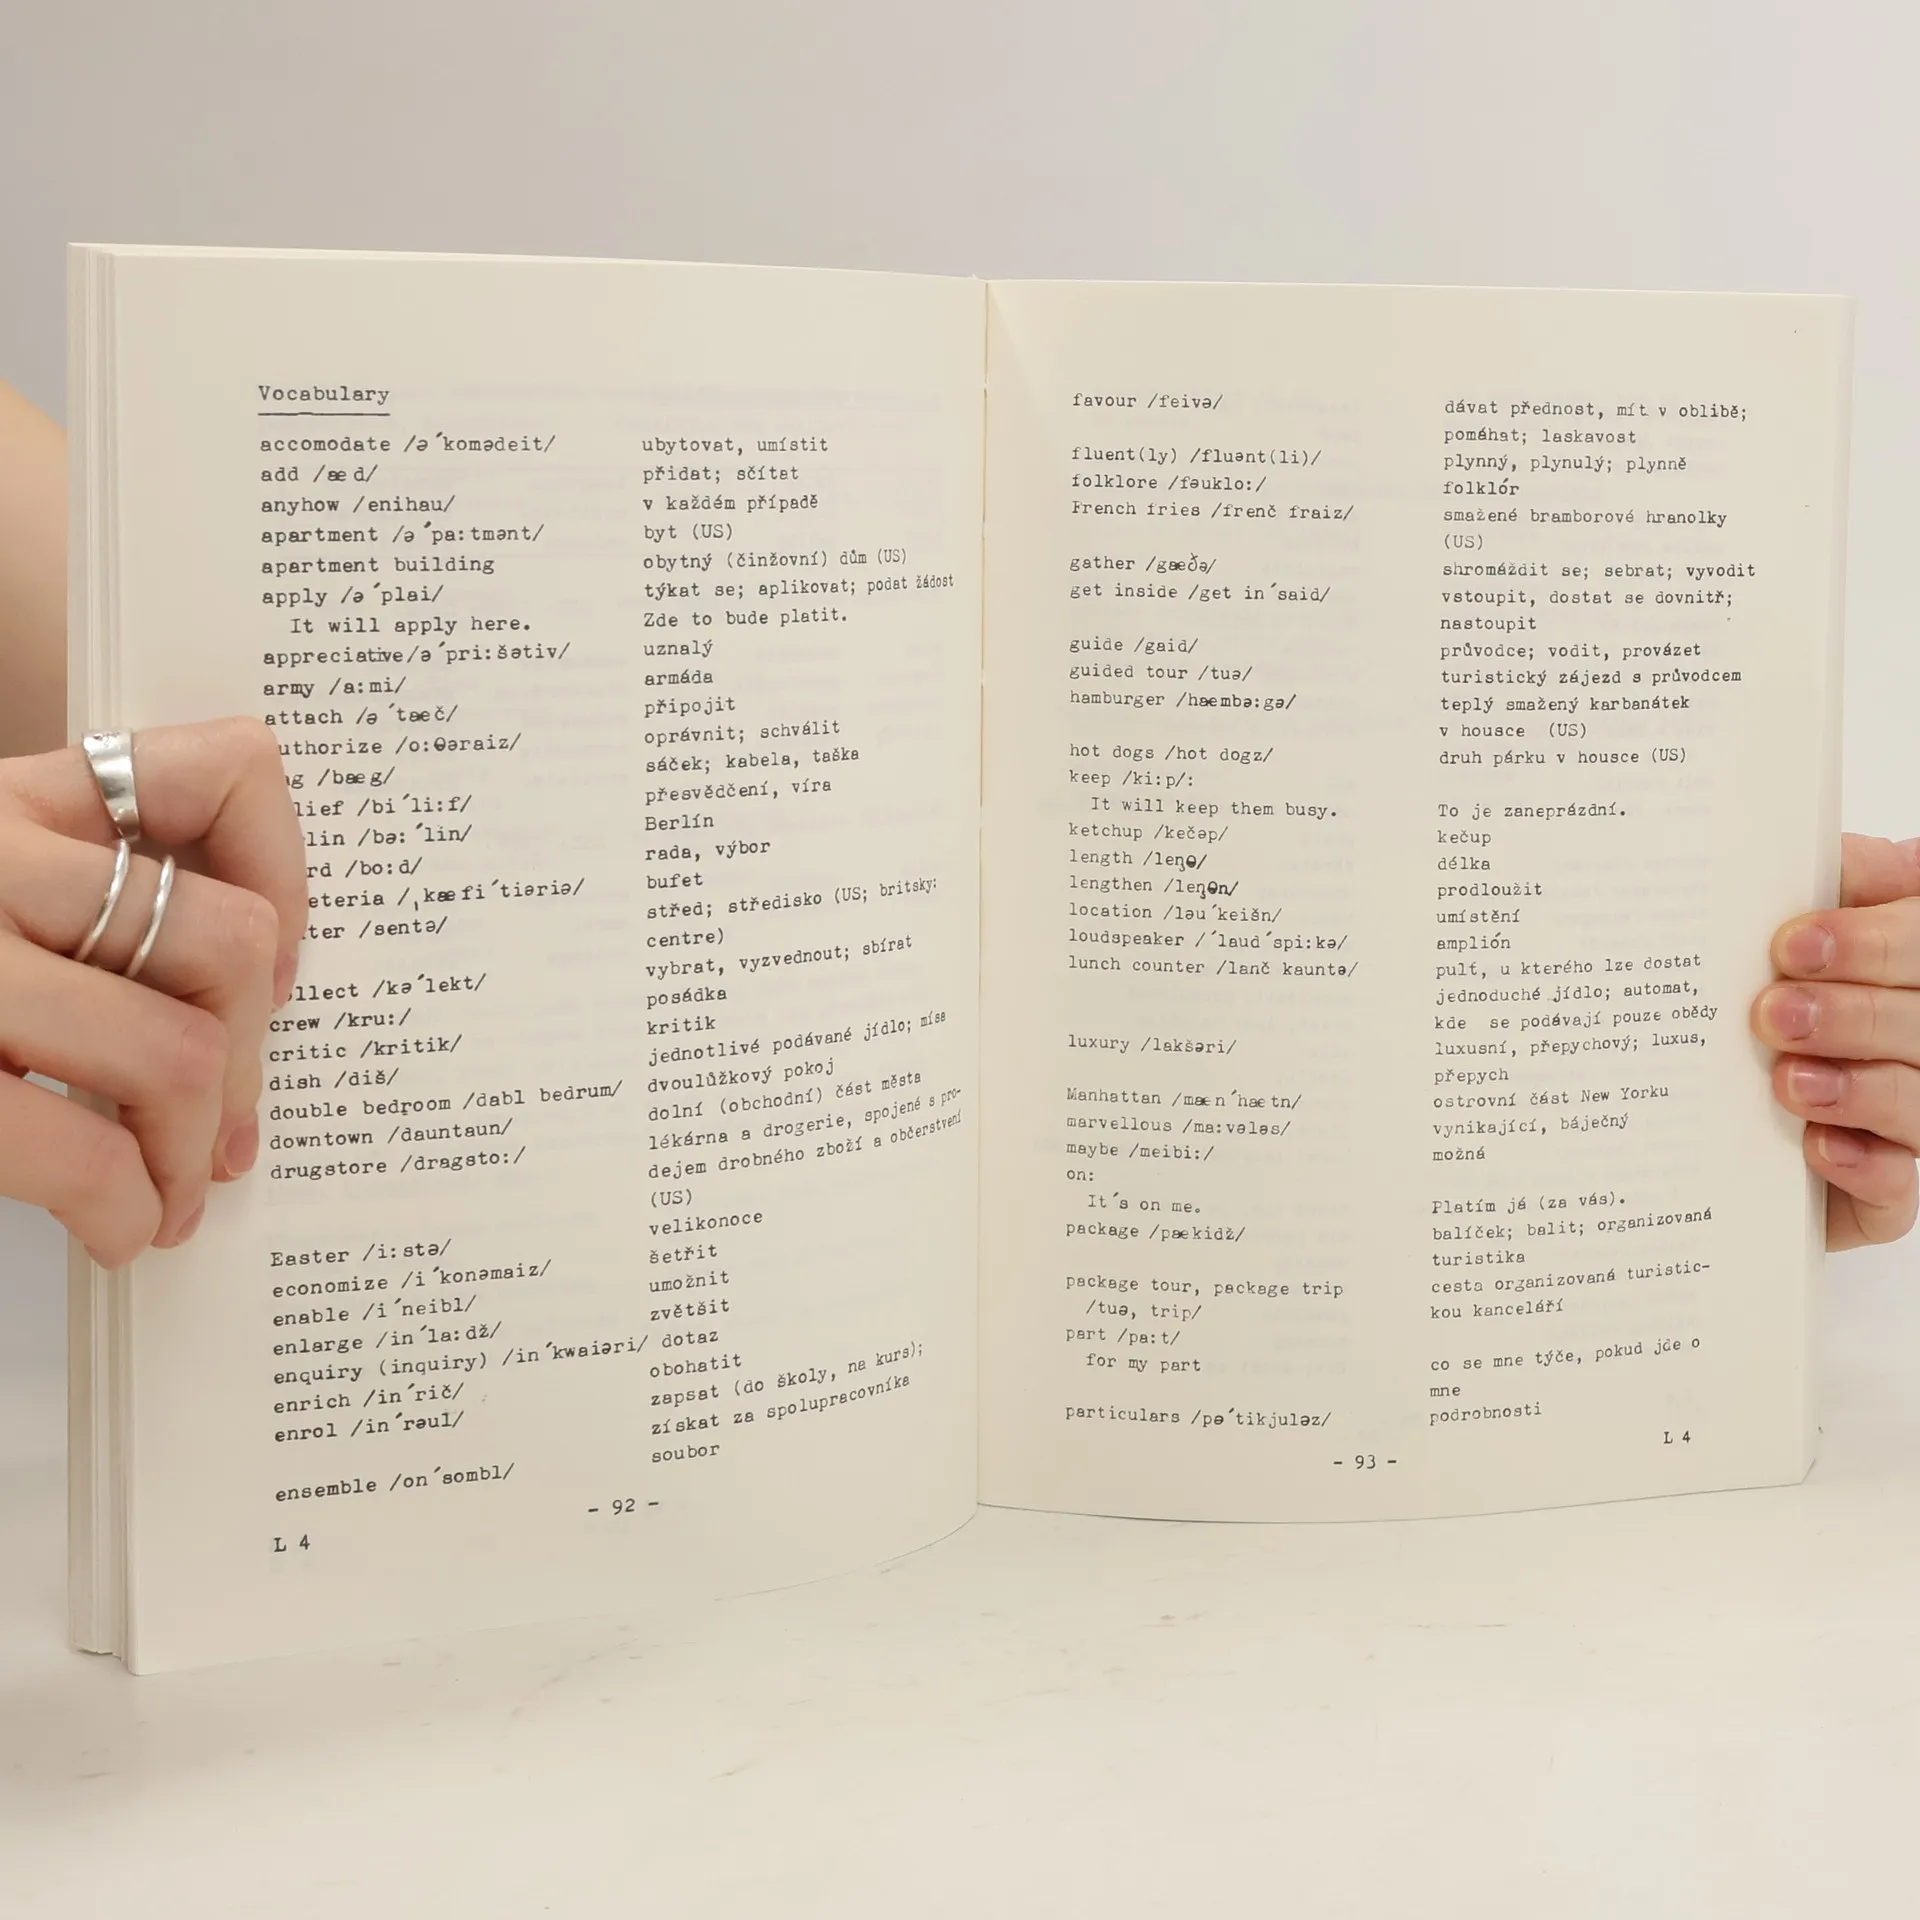 Vocabulary
accomodate /ə´komədeit/ ubytovat, umístit
add /æd/ přidat; sčítat
anyhow /enihau/ v každém případě
apartment /ə´pa:tmənt/ byt (US)
apartment building obytný (činžovní) dům (US)
apply /ə´plai/ týkat se; aplikovat; podat žádost
It will apply here. Zde to bude platit.
appreciative/ə´pri:šətiv/ uznalý
army /a:mi/ armáda
attach /ə´tæč/ připojit
uthorize /o:θəraiz/ oprávnit; schválit
g /bæg/ sáček; kabela, taška
lief /bi´li:f/ přesvědčení, víra
lin /bə:´lin/ Berlín
rd /bo:d/ rada, výbor
eteria /ˌkæfi´tiəriə/ bufet
ter /sentə/ střed; středisko (US; britsky:
centre)
llect /kə´lekt/ vybrat, vyzvednout; sbírat
crew /kru:/ posádka
critic /kritik/ kritik
dish /diš/ jednotlivé podávané jídlo; mísa
double bedroom /dabl bedrum/ dvoulůžkový pokoj
downtown /dauntaun/ dolní (obchodní) část města
drugstore /dragsto:/ lékárna a drogerie, spojené s pro-
dejem drobného zboží a občerstvení
(US)
Easter /i:stə/ velikonoce
economize /i´konəmaiz/ šetřit
enable /i´neibl/ umožnit
enlarge /in´la:dž/ zvětšit
enquiry (inquiry) /in´kwaiəri/ dotaz
enrich /in´rič/ obohatit
enrol /in´rəul/ zapsat (do školy, na kurs);
získat za spolupracovníka
ensemble /on´sombl/ soubor
- 92 -
L 4
favour /feivə/ dávat přednost, mít v oblibě;
pomáhat; laskavost
fluent(ly) /fluənt(li)/ plynný, plynulý; plynně
folklore /fəuklo:/ folklór
French fries /frenč fraiz/ smažené bramborové hranolky
(US)
gather /gæðə/ shromáždit se; sebrat; vyvodit
get inside /get in´said/ vstoupit, dostat se dovnitř;
nastoupit
guide /gaid/ průvodce; vodit, provázet
guided tour /tuə/ turistický zájezd s průvodcem
hamburger /hæmbə:gə/ teplý smažený karbanátek
v housce (US)
hot dogs /hot dogz/ druh párku v housce (US)
keep /ki:p/:
It will keep them busy. To je zaneprázdní.
ketchup /kečəp/ kečup
length /leŋθ/ délka
lengthen /leŋθn/ prodloužit
location /ləu´keišn/ umístění
loudspeaker /´laud´spi:kə/ amplión
lunch counter /lanč kauntə/ pult, u kterého lze dostat
jednoduché jídlo; automat,
kde se podávají pouze obědy
luxury /lakšəri/ luxusní, přepychový; luxus,
přepych
Manhattan /mæn´hætn/ ostrovní část New Yorku
marvellous /ma:vələs/ vynikající, báječný
maybe /meibi:/ možná
on:
It´s on me. Platím já (za vás).
package /pækidž/ balíček; balit; organizovaná
turistika
package tour, package trip cesta organizovaná turistic-
/tuə, trip/ kou kanceláří
part /pa:t/
for my part co se mne týče, pokud jde o
mne
particulars /pə´tikjuləz/ podrobnosti
L 4
- 93 -